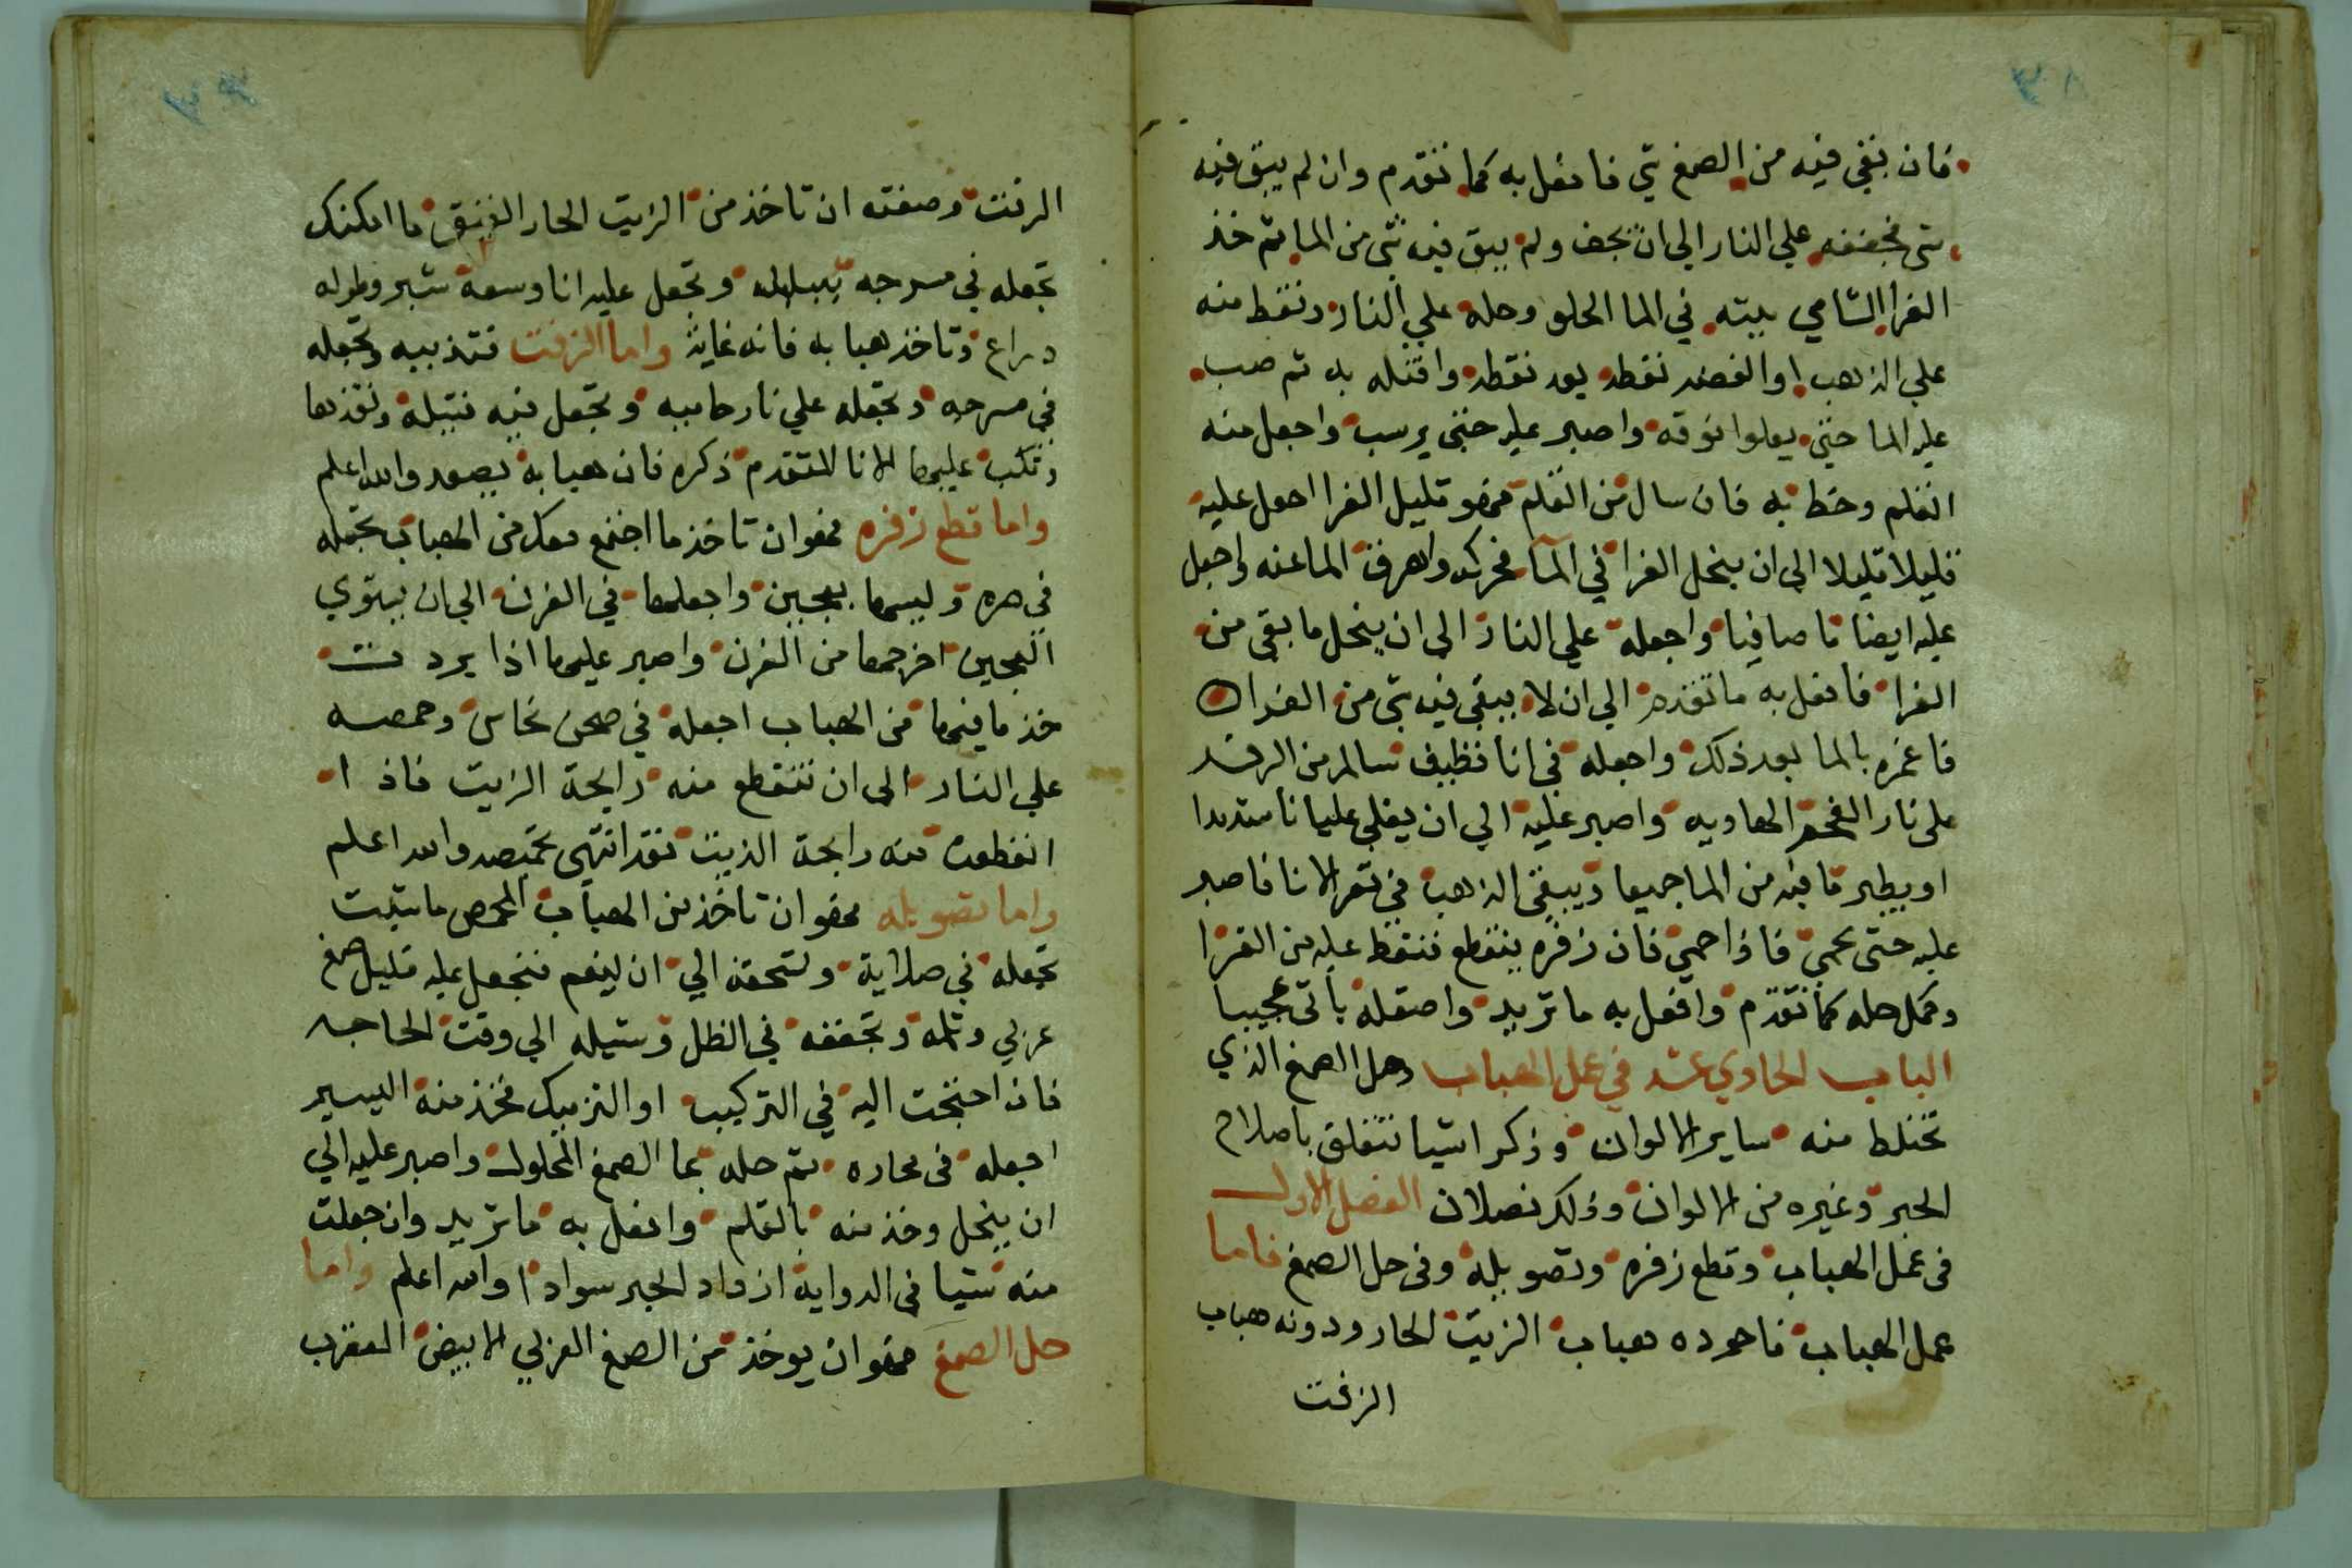 فان بقي فيه من الصمغ شي فافعل به كما تقدم وان لم يبق فيه
شي فجففه علي النار الي ان يجف ولم يبق فيه شي من الما ثم خذ
الغرا الشامي بيته في الما الحلو وحله علي النار ونقط منه
علي الذهب او الفضه نقطه بعد نقطه واقتله به ثم صب
عليه الما حتي يعلوا فوقه واصبر عليه حتي يرسب واجعل منه
القلم وخط به فان سال من القلم فهو قليل الغرا احعل عليه
قليلا قليلا الي ان ينحل الغرا في المآ فحركه واهرق الما عنه واجعل
عليه ايضا ما صافيا واجعله علي النار الي ان ينحل ما بقي من
الغرا فافعل به ما تقدم الي ان لا يبقي فيه شي من الغرا
فاغمره بالما بعد ذلك واجعله في انا نظيف سالم من
علي نار الفحم الهاديه واصبر عليه الي ان يغلي غليانا شديدا
او يطير ما فيه من الما جميعا ويبقي الذهب في قعر الانا فاصبر
عليه حتى يحمي فاذا حمي فان زفره ينقطع فنقط عليه من الغرا
وكمل حله كما تقدم وافعل به ما تريد واصقله يأتي عجيبا
الباب الحادي عشر في عمل الهباب وحل الصمغ الذي
تختلط منه ساير الالوان وذكر اشيا تتعلق باصلاح
الحبر وغيره من الالوان وذلك فصلان الفصل الاول
في عمل الهباب وقطع زفره وتصويله وفي حل الصمغ فاما
عمل الهباب فاجوده هباب الزيت الحار ودونه هباب
الزفت
الزفت وصفته ان تاخذ من الزيت الحار العتيق ما امكنك
تجعله في مسرجه وتجعل عليه انا وسعة شبر وطوله
دراع وتاخذ هبا به فانه غاية واما الزفت فتذيبه وتجعله
في مسرجه وتجعله علي نار حاميه وتجعل فيه فتيلة وتقذها
وتكب عليها الانا المتقدم ذكره فان هبابه يصعد والله اعلم
واما قطع زفره فهو ان تاخذ ما اجتمع معك من الهباب تجعله
في صره وليسها بعجين واجعلها في الفرن الي ان يستوي
العجين اخرجها من الفرن واصبر عليها اذا بردت
خذ ما فيها من الهباب اجعله في صحن نحاس وحمصه
علي النار الي ان تنقطع منه رايحة الزيت فاذا
انقطعت منه رايحة الزيت فقد انتهى تحميصه والله اعلم
واما تصويله فهو ان تاخذ من الهباب المحمص ما شيت
تجعله في صلاية وتسحقه الي ان ينعم فتجعل عليه قليل صمغ
عربي وتجففه في الظل وتشيله الي وقت الحاجه
فان احتجت اليه في التركيب او التزميك فخذ منه اليسير
اجعله في محاره ثم حله بما الصمغ المحلول واصبر عليه الي
ان ينحل وخذ منه بالقلم وافعل به ما تريد وان جعلت
منه شيا في الدواية ازداد الحبر سوادا والله اعلم واما
حل الصمغ فهو ان يوخذ من الصمغ العربي الابيض المعقرب